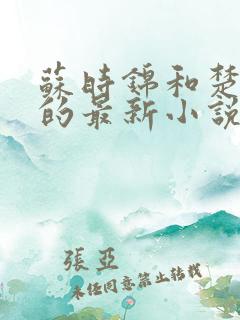 蘇時錦和楚
的最新小說
張亞
未經同意禁止轉載